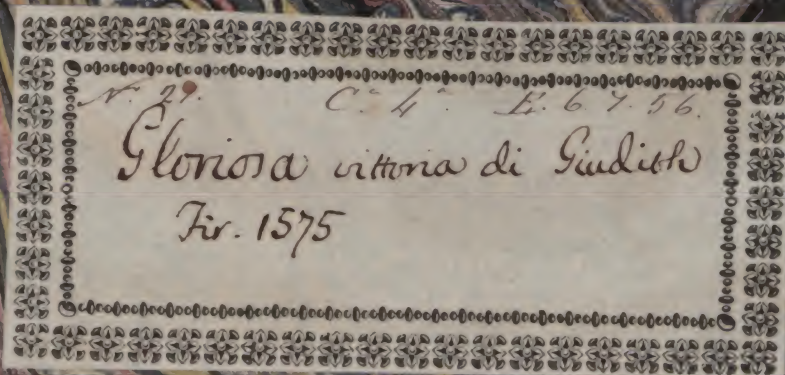 N. 29. C.ª 4ª. E. 6. 7. 56.
Gloriosa vittoria di Giudith
Fir. 1575